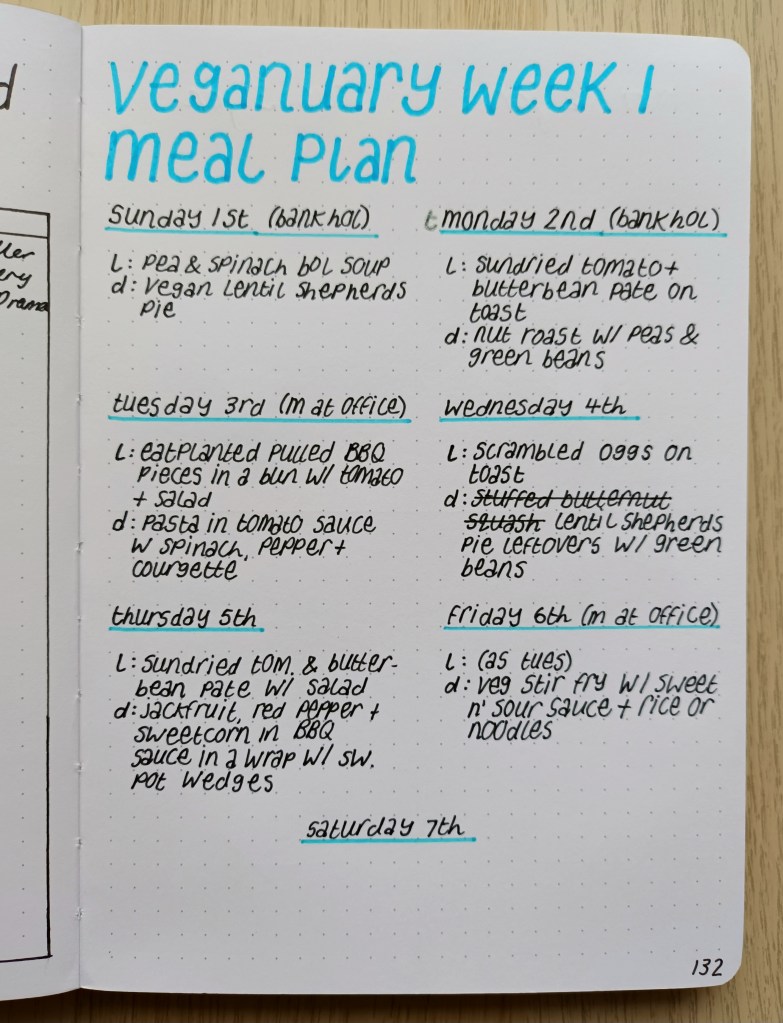 d
ller
ery
Drama
veganuary week 1
meal plan
sunday 1st (bank hol)
L: pea & spinach bol soup
d: vegan lentil shepherds
pie
monday 2nd (bank hol)
L: sundried tomato +
butterbean pate on
toast
d: nut roast w/ peas &
green beans
tuesday 3rd (m at office)
L: eatplanted pulled BBQ
pieces in a bun w/ tomato
+ salad
d: pasta in tomato sauce
w spinach, pepper +
courgette
wednesday 4th
L: scrambled oggs on
toast
d: stuffed butternut
squash lentil shepherds
pie leftovers w/ green
beans
thursday 5th
L: sundried tom. & butter-
bean pate w/ salad
d: jackfruit, red pepper +
sweetcorn in BBQ
sauce in a wrap w/ sw.
pot wedges
friday 6th (m at office)
L: (as tues)
d: veg stir fry w/ sweet
n' sour sauce + rice or
noodles
saturday 7th
132